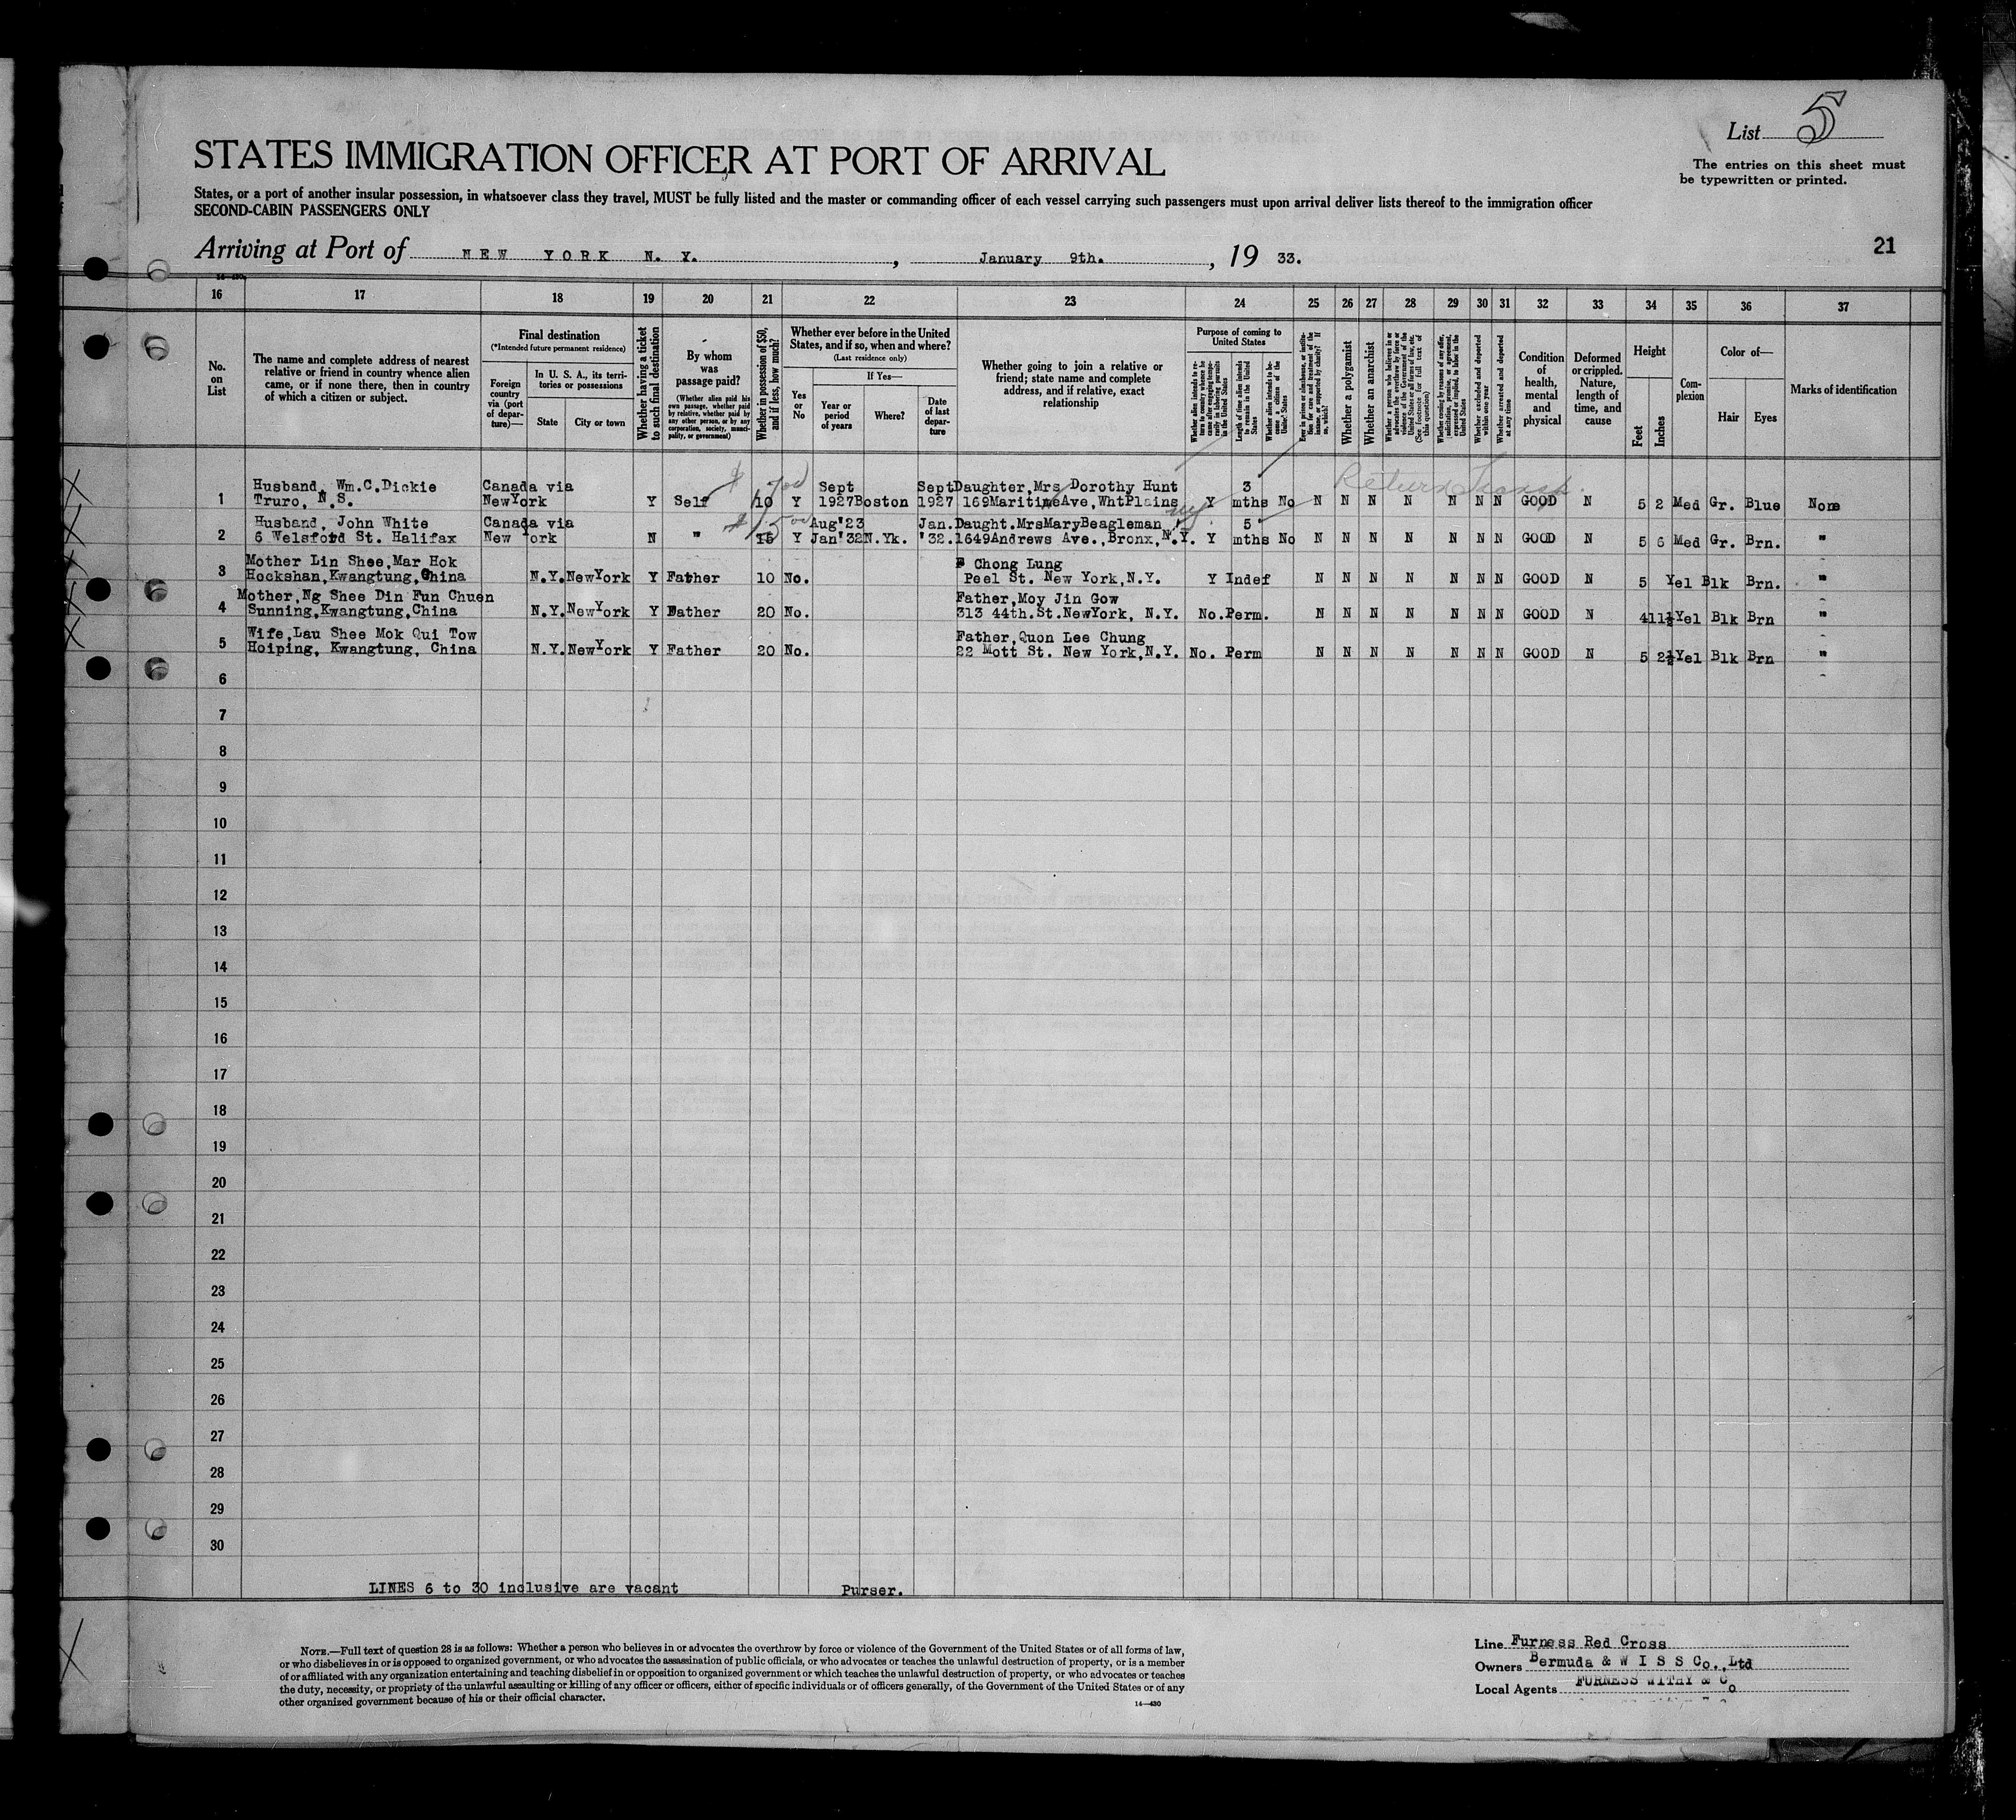 List 5
The entries on this sheet must
be typewritten or printed.
STATES IMMIGRATION OFFICER AT PORT OF ARRIVAL
States, or a port of another insular possession, in whatsoever class they travel, MUST be fully listed and the master or commanding officer of each vessel carrying such passengers must upon arrival deliver lists thereof to the immigration officer
SECOND-CABIN PASSENGERS ONLY
Arriving at Port of NEW YORK N. Y., January 9th., 19 33.
21
16 17 18 19 20 21 22 23 24 25 26 27 28 29 30 31 32 33 34 35 36 37
No. on List
The name and complete address of nearest relative or friend in country whence alien came, or if none there, then in country of which a citizen or subject.
Final destination
(*Intended future permanent residence)
Foreign country via (port of departure)—
In U. S. A., its territories or possessions
State
City or town
Whether having a ticket to such final destination
By whom was passage paid?
(Whether alien paid his own passage, whether paid by relative, whether paid by any other person, or by any corporation, society, municipality, or government)
Whether in possession of $50, and if less, how much?
Whether ever before in the United States, and if so, when and where?
(Last residence only)
Yes or No
If Yes—
Year or period of years
Where?
Date of last departure
Whether going to join a relative or friend; state name and complete address, and if relative, exact relationship
Purpose of coming to United States
Length of time alien intends to remain in the United States
Whether alien intends to become a citizen of the United States
Whether a polygamist
Whether an anarchist
Whether excluded and deported within one year
Whether arrested and deported at any time
Condition of health, mental and physical
Deformed or crippled. Nature, length of time, and cause
Height
Feet
Inches
Complexion
Color of—
Hair
Eyes
Marks of identification
Return Transp.
1 Husband, Wm.C.Dickie Truro, N.S. Canada via NewYork Y Self 10 Y Sept 1927 Boston Sept 1927 Daughter,Mrs Dorothy Hunt 169MaritimeAve,WhtPlains Y 3 mths No N N N N N N N GOOD N 5 2 Med Gr. Blue None
2 Husband, John White 6 Welsford St. Halifax Canada via New York N " 15 Y Aug'23 Jan'32 N.Yk. Jan. '32. Daught.MrsMaryBeagleman 1649Andrews Ave.,Bronx,N.Y. Y 5 mths No N N N N N N N GOOD N 5 6 Med Gr. Brn. "
3 Mother Lin Shee,Mar Hok Hockshan,Kwangtung,China N.Y. NewYork Y Father 10 No. F Chong Lung Peel St. New York,N.Y. Y Indef N N N N N N N GOOD N 5 Yel Blk Brn. "
4 Mother,Ng Shee Din Fun Chuen Sunning,Kwangtung,China N.Y. NewYork Y Father 20 No. Father,Moy Jin Gow 313 44th.St.NewYork, N.Y. No. Perm. N N N N N N N GOOD N 4 11½ Yel Blk Brn "
5 Wife,Lau Shee Mok Qui Tow Hoiping, Kwangtung, China N.Y. NewYork Y Father 20 No. Father,Quon Lee Chung 22 Mott St. New York,N.Y. No. Perm N N N N N N N GOOD N 5 2½ Yel Blk Brn "
6
7
8
9
10
11
12
13
14
15
16
17
18
19
20
21
22
23
24
25
26
27
28
29
30
LINES 6 to 30 inclusive are vacant Purser.
NOTE.—Full text of question 28 is as follows: Whether a person who believes in or advocates the overthrow by force or violence of the Government of the United States or of all forms of law,
or who disbelieves in or is opposed to organized government, or who advocates the assassination of public officials, or who advocates or teaches the unlawful destruction of property, or is a member
of or affiliated with any organization entertaining and teaching disbelief in or opposition to organized government or which teaches the unlawful destruction of property, or who advocates or teaches
the duty, necessity, or propriety of the unlawful assaulting or killing of any officer or officers, either of specific individuals or of officers generally, of the Government of the United States or of any
other organized government because of his or their official character.
14—430
Line Furness Red Cross
Owners Bermuda & W I S S Co.,Ltd
Local Agents FURNESS WITHY & Co